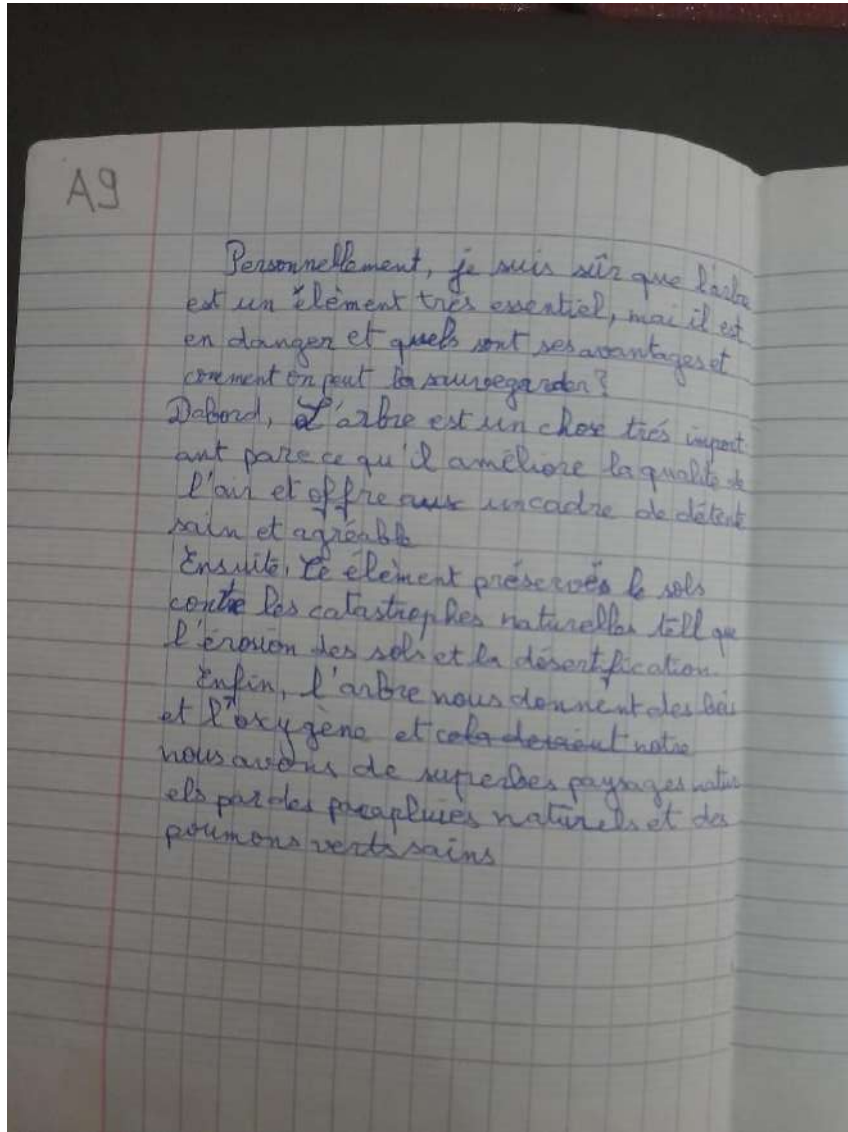 A9
Personnellement, je suis sûr que l'arbre
est un élèment très essentiel, mai il est
en danger et quels sont ses avantages et
comment on peut la sauvegarder?
Dabord, L'arbre est un chose trés import
ant parce qu'il améliore la qualité de
l'air et offre aux un cadre de détente
sain et agréable
Ensuite, Ce élèment préservés le sols
contre les catastrophes naturelles tell que
l'érosion des sols et la désertification.
Enfin, l'arbre nous donnent des bois
et l'oxygène et cela devient notre
nous avons de superbes paysages natur
els par des parapluies naturels et des
poumons verts sains